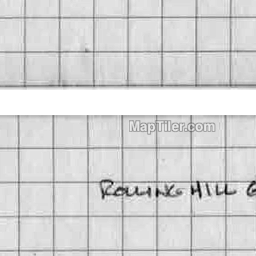 MapTiler.com
ROLLING HILL